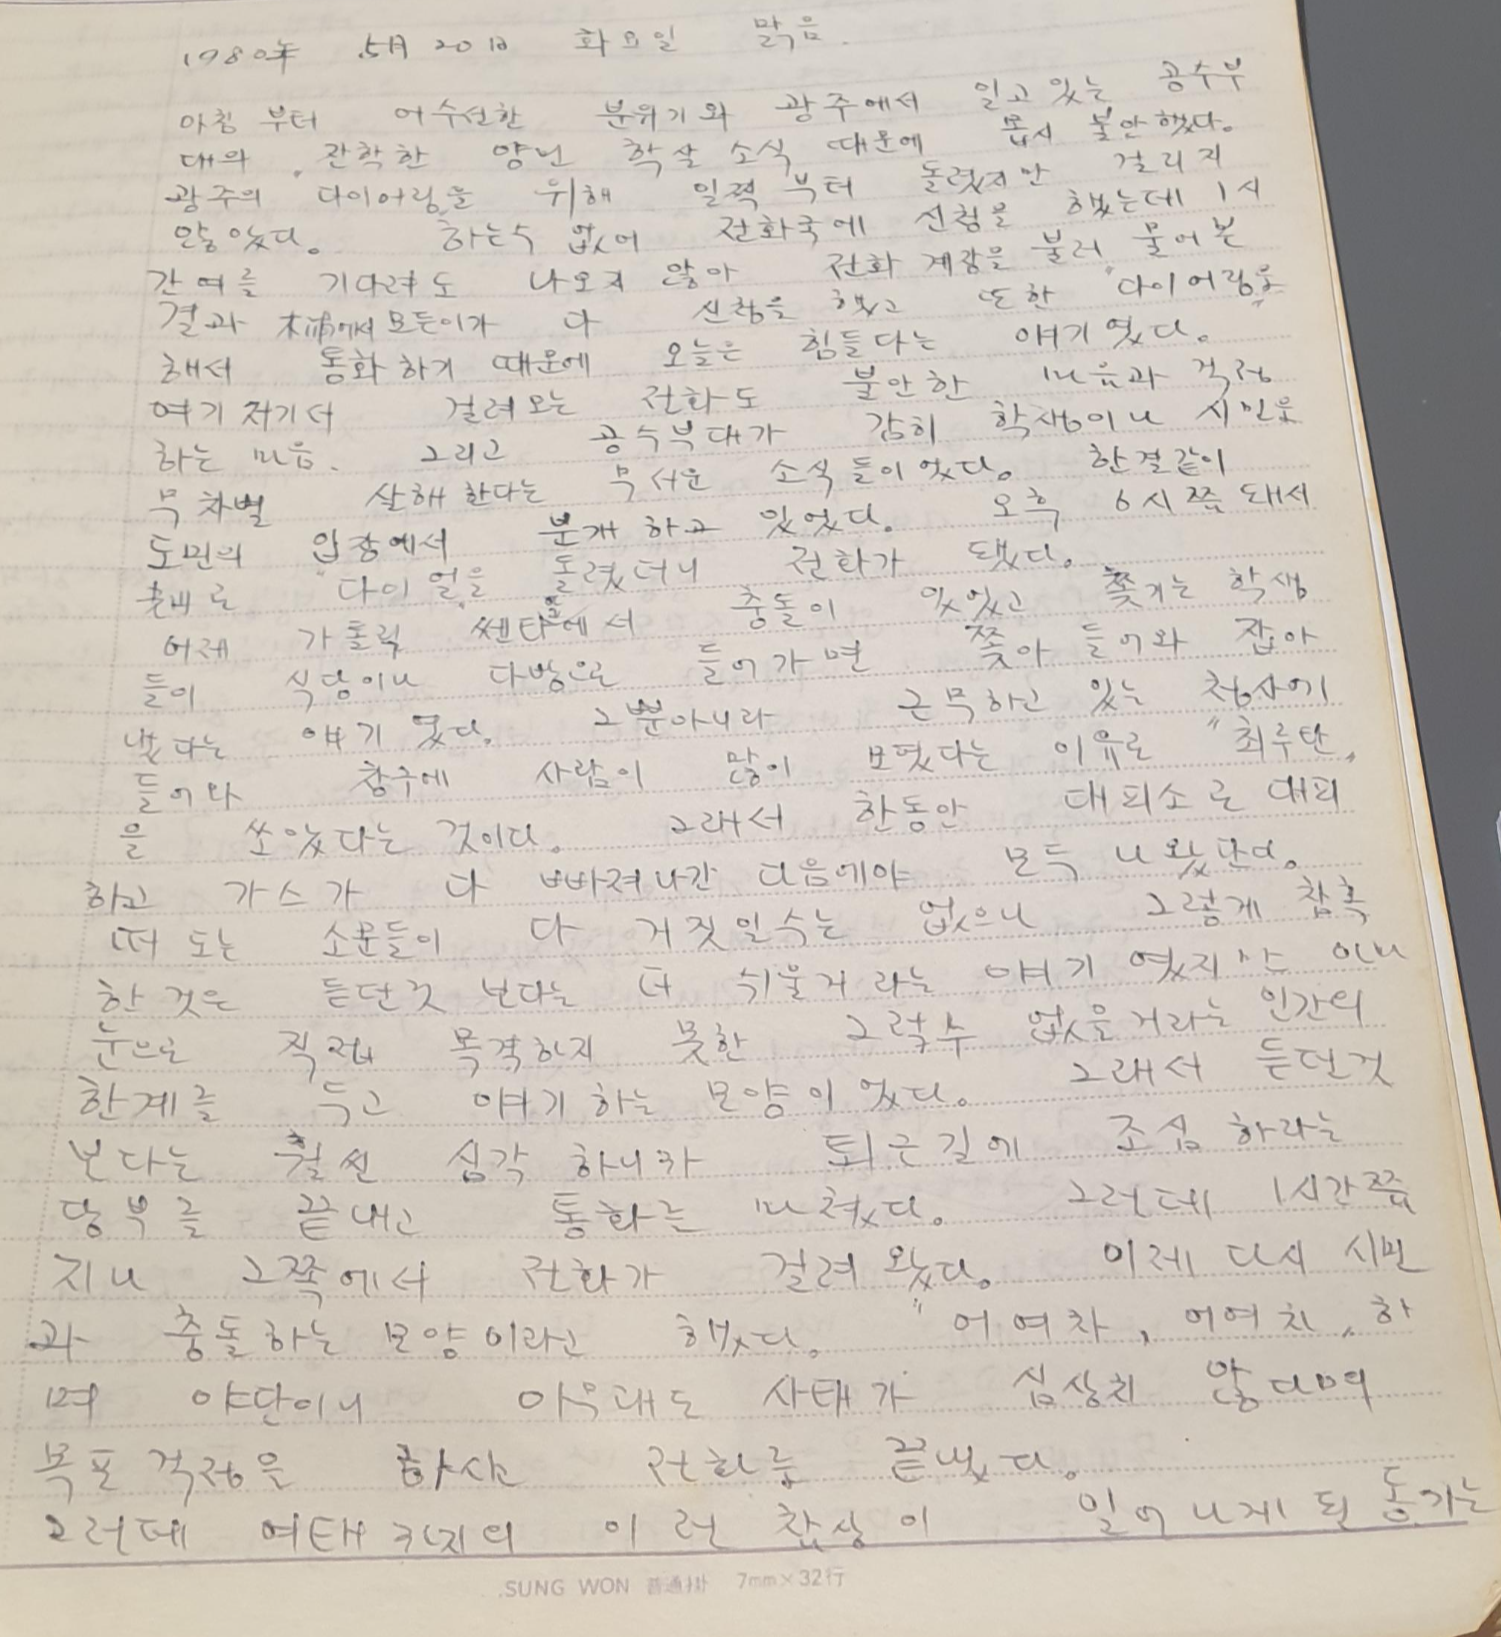 1980年 5月 20日 화요일 맑음.
아침 부터 어수선한 분위기와 광주에서 일고 있는 공수부
대의 잔학한 양민 학살 소식 때문에 몹시 불안했다.
광주의 다이어링을 위해 일찍 부터 돌렸지만 걸리지
않았다. 하는수 없어 전화국에 신청을 했는데 1시
간여를 기다려도 나오지 않아 전화 계장을 불러 물어본
결과 木浦에서 모든이가 다 신청을 했고 또한 "다이어링"을
해서 통화하기 때문에 오늘은 힘들다는 얘기였다.
여기저기서 걸려오는 전화도 불안한 마음과 걱정
하는 마음. 그리고 공수부대가 감히 학생이나 시민을
무차별 살해한다는 무서운 소식들이었다. 한결같이
도민의 입장에서 분개하고 있었다. 오후 6시쯤 돼서
"다이얼"을 돌렸더니 전화가 됐다.
어제 가톨릭 쎈타에서 충돌이 있었고 쫓기는 학생
들이 식당이나 다방으로 들어가면 쫓아 들어와 잡아
냈다는 얘기였다. 그뿐아니라 근무하고 있는 청사에
들어와 창구에 사람이 많이 보였다는 이유로 "최루탄"
을 쏘았다는 것이다. 그래서 한동안 대피소로 대피
하고 가스가 다 빠져나간 다음에야 모두 나왔단다.
떠도는 소문들이 다 거짓일수는 없으나 그렇게 참혹
한 것은 듣던것 보다는 더 쉬울거라는 얘기였지만
눈으로 직접 목격하지 못한 그럴수 없을거라는 인간의
한계를 두고 얘기하는 모양이었다. 그래서 듣던것
보다는 훨씬 심각하니까 퇴근길에 조심하라는
당부를 끝내고 통화를 마쳤다. 그런데 1시간쯤
지나 그쪽에서 전화가 걸려왔다. 이제 다시 시민
과 충돌하는 모양이라고 했다. "어여차, 어여차" 하
며 야단이니 아무래도 사태가 심상치 않다며
목포 걱정을 하시고 전화를 끝냈다.
그런데 여태까지의 이런 참상이 일어나게 된 동기는
SUNG WON 普通掛 7mm×32行